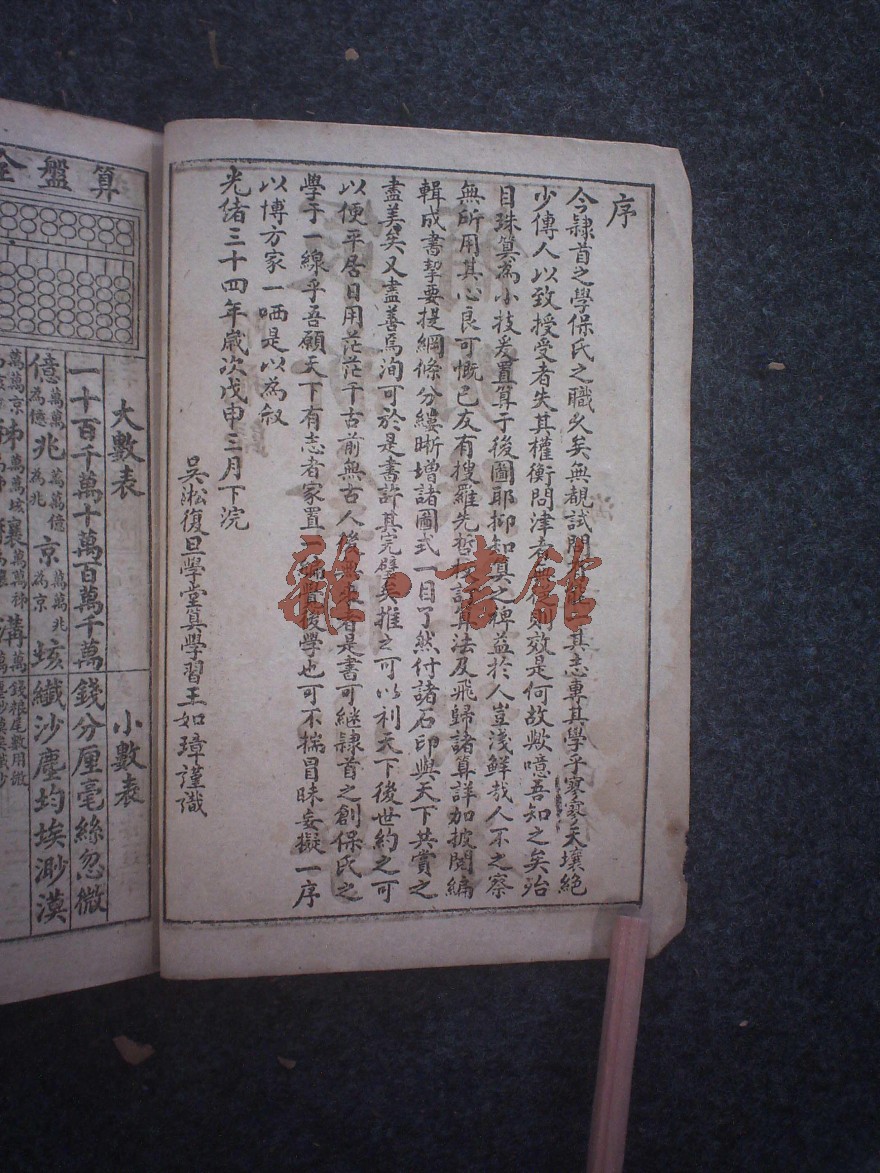 序
今隸首之學保氏之職久矣無覩試問 其志專其學乎寥寥天壤絕
少傳人以致授受者失其權衡問津者無 則效是何故歟噫吾知之矣殆
目珠算為小技爰置算于後圖耶抑知算之裨益於人豈淺鮮哉人不之察
無所用其心良可慨已友有搜羅先哲 算法及飛歸諸算詳加披閱編
輯成書挈要提綱條分縷晰增諸圖式一目了然付諸石印與天下共賞之
盡美矣又盡善焉洵可於是書許其完璧矣推之可以利天下後世約之可
以便平居日用茫茫千古前無古人後 者是書可繼隸首之創保氏之
學于一線乎吾願天下有志者家置一編 後學也可不揣冒昧妄擬一序
以博方家一哂是以為敘
光緒三十四年歲次戊申三月下浣
吳淞復旦學堂算學習王如璋謹識
算盤全
大數表
一十百千萬十萬百萬千萬
億萬萬為億兆萬萬億為兆京萬萬兆為京垓
小數表
錢分厘毫絲忽微
纖沙塵埃渺漠
雜·書館